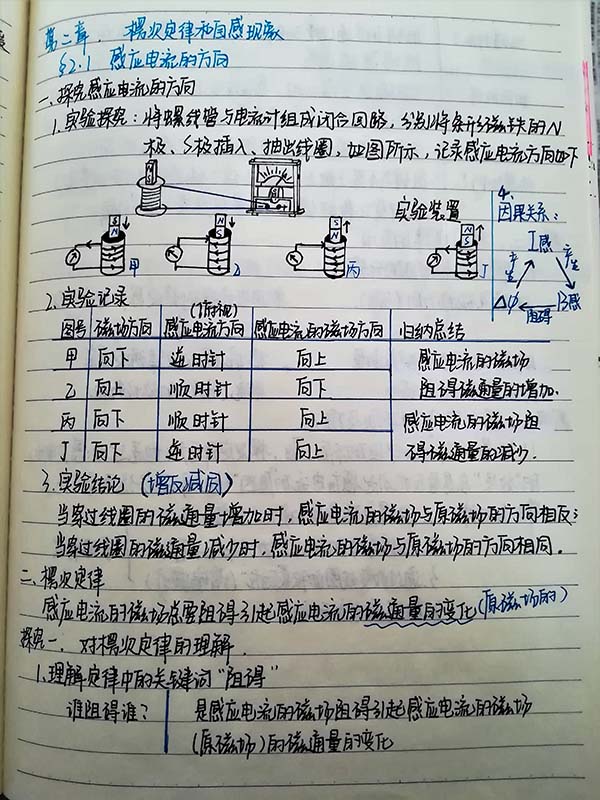 第二章 楞次定律和自感现象
§2.1 感应电流的方向
一、探究感应电流的方向
1.实验探究：将螺线管与电流计组成闭合回路，分别将条形磁铁的N
极、S极插入、抽出线圈，如图所示，记录感应电流方向如下
实验装置
S
N
甲
N
S
乙
S
N
丙
N
S
丁
4.
因果关系：
I感
产生
产生
ΔΦ
阻碍
B感
2.实验记录
(俯视)
图号 磁场方向 感应电流方向 感应电流的磁场方向 归纳总结
甲 向下 逆时针 向上 感应电流的磁场
乙 向上 顺时针 向下 阻碍磁通量的增加.
丙 向下 顺时针 向上 感应电流的磁场阻
丁 向下 逆时针 向上 碍磁通量的减少.
3.实验结论 (增反减同)
当穿过线圈的磁通量增加时，感应电流的磁场与原磁场的方向相反；
当穿过线圈的磁通量减少时，感应电流的磁场与原磁场的方向相同。
二、楞次定律
感应电流的磁场总要阻碍引起感应电流的磁通量的变化(原磁场的)
探究一. 对楞次定律的理解.
1.理解定律中的关键词"阻碍"
谁阻碍谁？ 是感应电流的磁场阻碍引起感应电流的磁场
(原磁场)的磁通量的变化